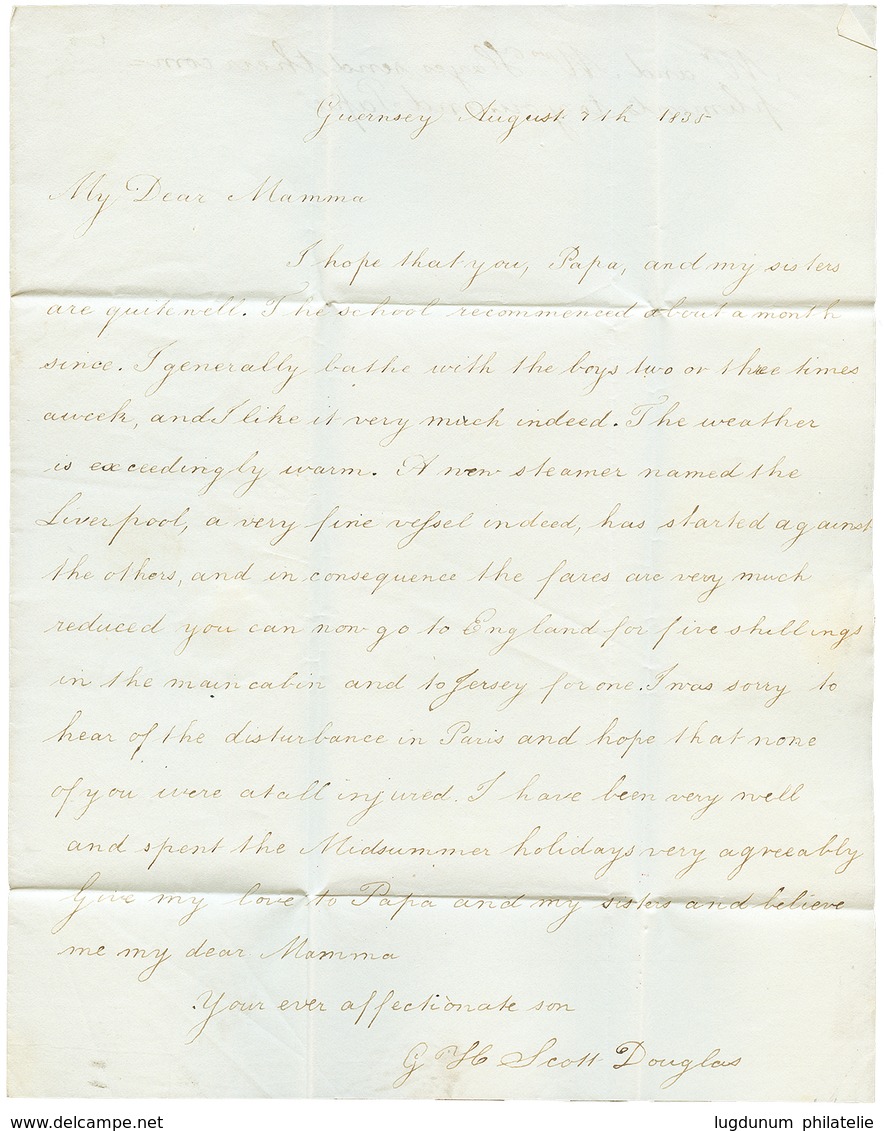 Guernsey August 7th 1835
My Dear Mamma
I hope that you, Papa, and my sisters
are quite well. The school recommenced about a month
since. I generally bathe with the boys two or three times
a week, and I like it very much indeed. The weather
is exceedingly warm. A new steamer named the
Liverpool, a very fine vessel indeed, has started against
the others, and in consequence the fares are very much
reduced you can now go to England for five shillings
in the main cabin and to Jersey for one. I was sorry to
hear of the disturbance in Paris and hope that none
of you were at all injured. I have been very well
and spent the Midsummer holidays very agreeably
Give my love to Papa and my sisters and believe
me my dear Mamma
Your ever affectionate son
G H Scott Douglas
www.delcampe.net
lugdunum philatelie